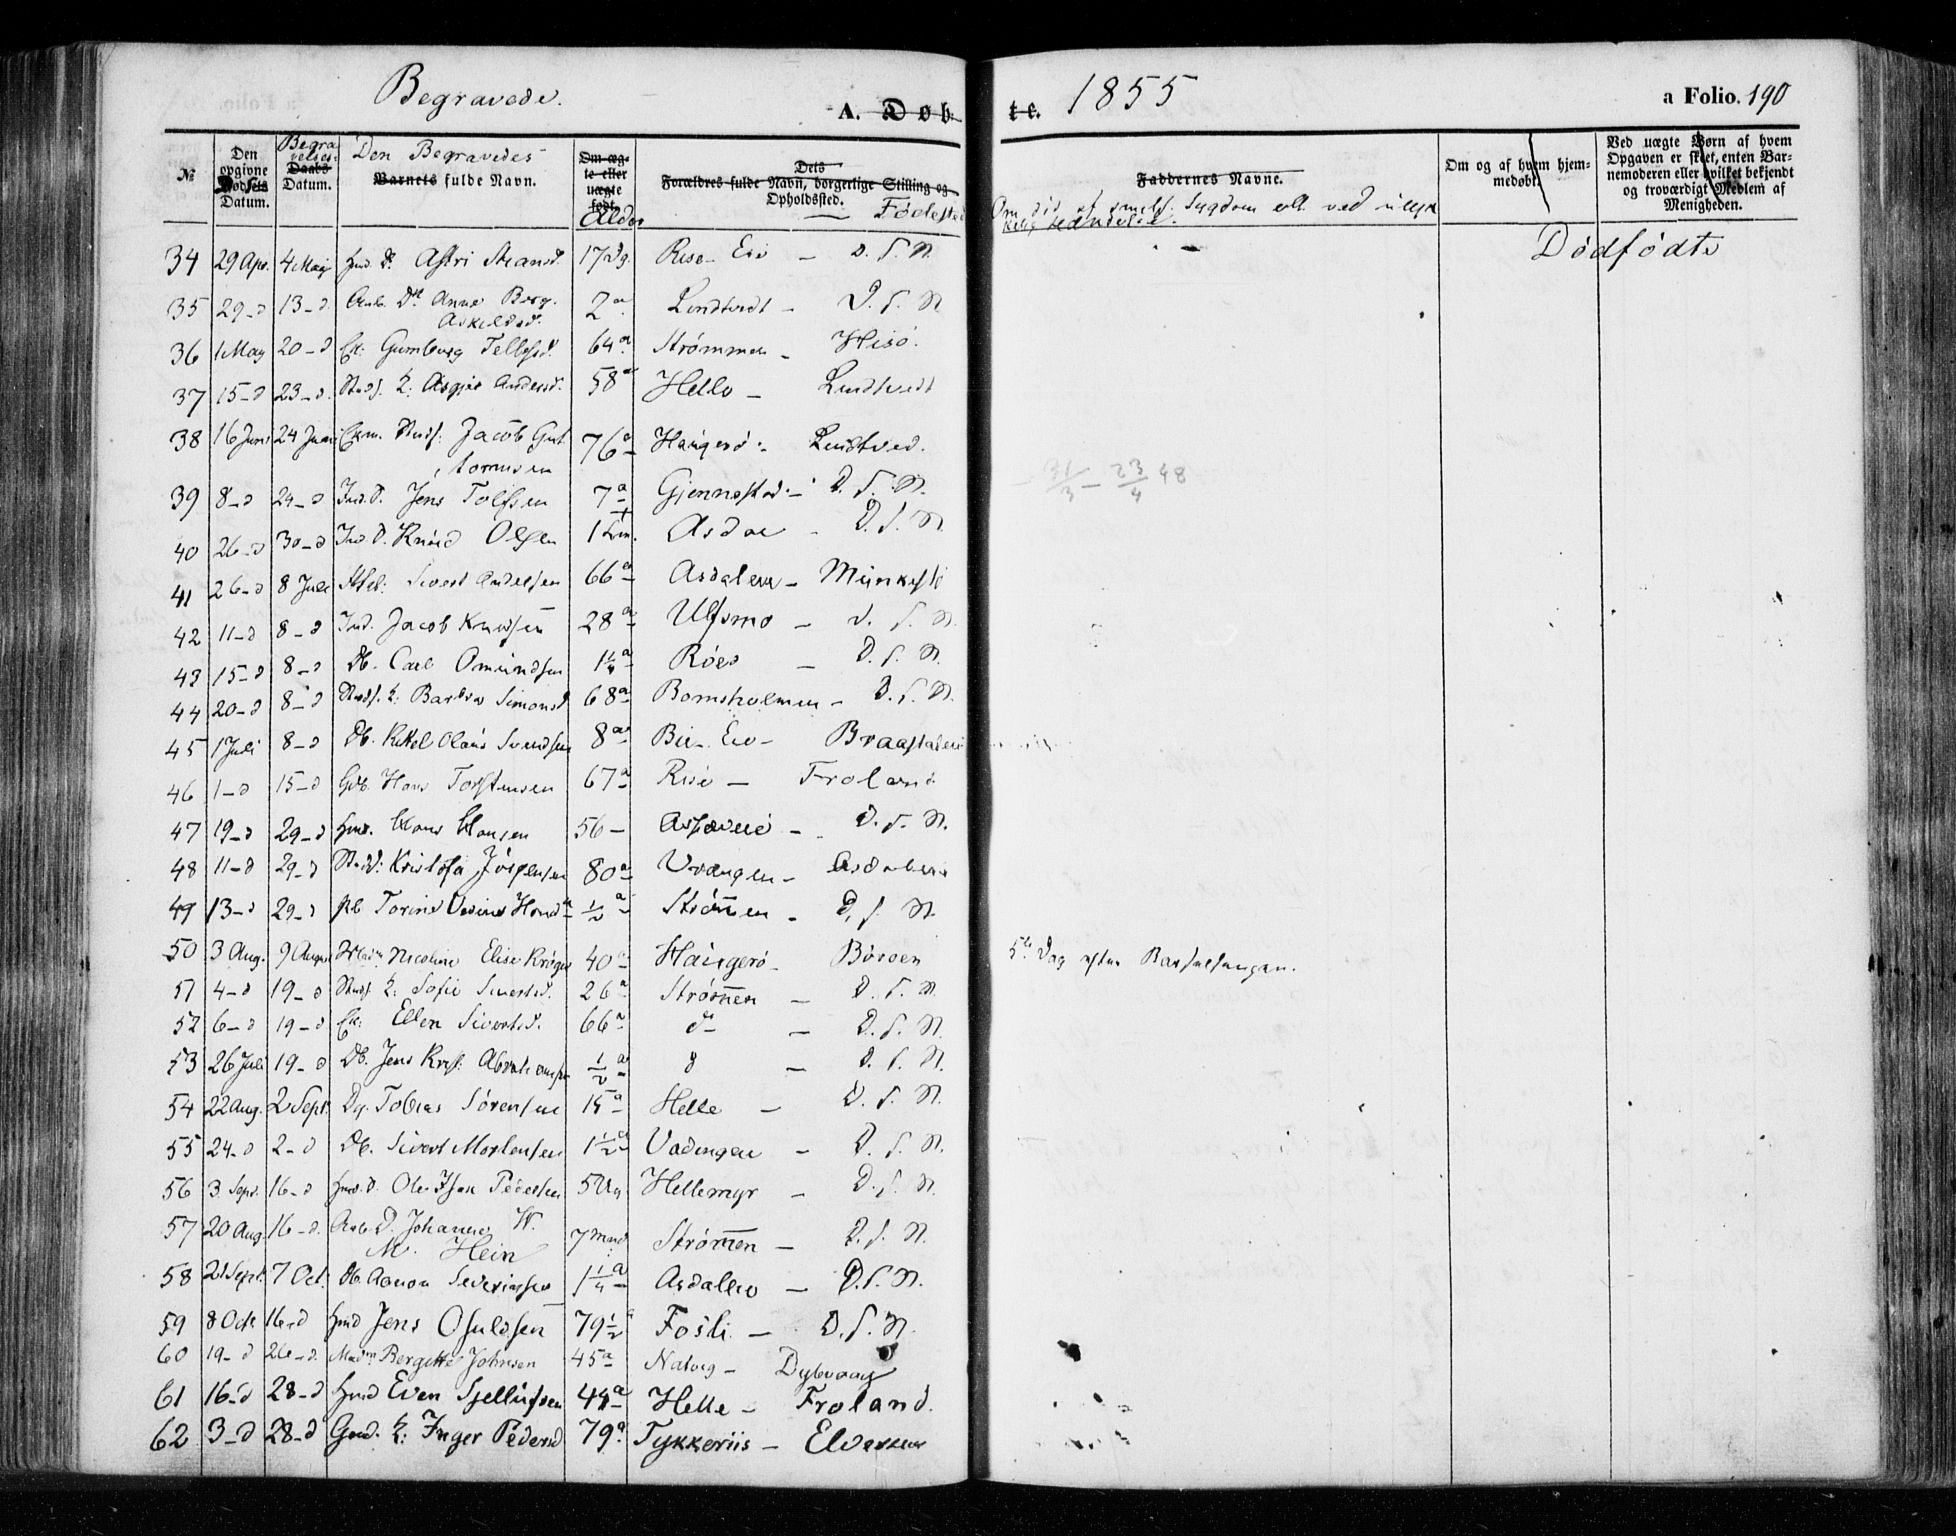 Begravede.
A. Døbte. 1855
a Folio. 190
№
Den opgivne Fødsels Datum.
Begravelses- Daabs Datum.
Den Begravedes Barnets fulde Navn.
Om ægte eller uægte født. Alder
Dets Forældres fulde Navn, borgerlige Stilling og Opholdssted. Fødested
Faddernes Navne.
Om og af hvem hjemmedøbt.
Ved uægte Børn af hvem Opgaven er skeet, enten Barnemoderen eller hvilket bekjendt og troværdigt Medlem af Menigheden.
Dødfødte
34 29 Apr. 4 Maj Astri 17 Dg. Rise Eie – D. S. N.
35 29-d 13-d Dtr Anne Berg. Askildsd. 2a Lindtvedt – D. S. N.
36 1 May 20-d Gumborg Tellefsd. 64a Strømmen – Hisø.
37 15-d 23-d K: Asgjer Andersd. 58a Helle – Lindtvedt
38 16 Juni 24 Juni Jacob Guttormsen 76a Haugerø – Lindtved.
39 8-d 24-d Ind. D. Jens Tolfsen 7a Gjennestad – D. S. N.
40 26-d 30-d Ind. D. Knud Olsen 1 Asdal – D. S. N.
31/3 – 23/4 48
41 26-d 8 Juli Sivert Andersen 66a Asdalen –
42 11-d 8-d Ind. Jacob Knudsen 28a Ulfsmo – D. S. N.
43 15-d 8-d Db. Carl Omundsen 1¼a Røed – D. S. N.
44 20-d 8-d K: Barbra Simonsd. 68a Bomsholmen – D. S. N.
45 1 Juli 8-d Db. Olaus Svendsen 8a Bie Eie – Braastadeie
46 1-d 15-d Gdb. Hans Torstensen 67a Rise – Froland
47 19-d 29-d Hmd. Hans Hansen 56 – D. S. N.
48 11-d 29-d Kristofa Jörgensen 80a Vrængen – Asdaleie
49 13-d 29-d Torine 1/2a Strömmen – D. S. N.
50 3 Aug. 9 August Madm Nicoline Elise Krøger 40a Haugerö – Böroen 5te Dag efter Barselsengen.
51 4-d 19-d K: Sofie Sivertsd. 26a Strömmen – D. S. N.
52 6-d 19-d Ellen Sivertsd. 66a d – D. S. N.
53 26 Juli 19-d Db. Jens Krist: Abrahamsen 1/2a d – D. S. N.
54 22 Aug. 2 Sept. Dg. Tobias Sörensen 15a Helle – D. S. N.
55 24-d 2-d Db. Sivert Mortensen 1½a Vadingen – D. S. N.
56 3 Sept. 16-d Hmd. D. Ole Pedersen 5 Helle­myr – D. S. N.
57 20 Aug. 16-d Arb. D. Johanne W. M. Hein 7 Mnd Strömmen – D. S. N.
58 21 Sept. 7 Oct. Db. Aanon Severinsen 1¼a Asdaleie – D. S. N.
59 8 Oct. 16-d Hmd Jens Osuldsen 79½ Fosli – D. S. N.
60 19-d 26-d Madm Bergitte Johnsen 45a Natvig – Dybvaag
61 16-d 28-d Hmd Even Sjellufsen 44a Helle – Froland.
62 3-d 28-d Gmd. K: Inger Pedersd 79a Tykkeriis –